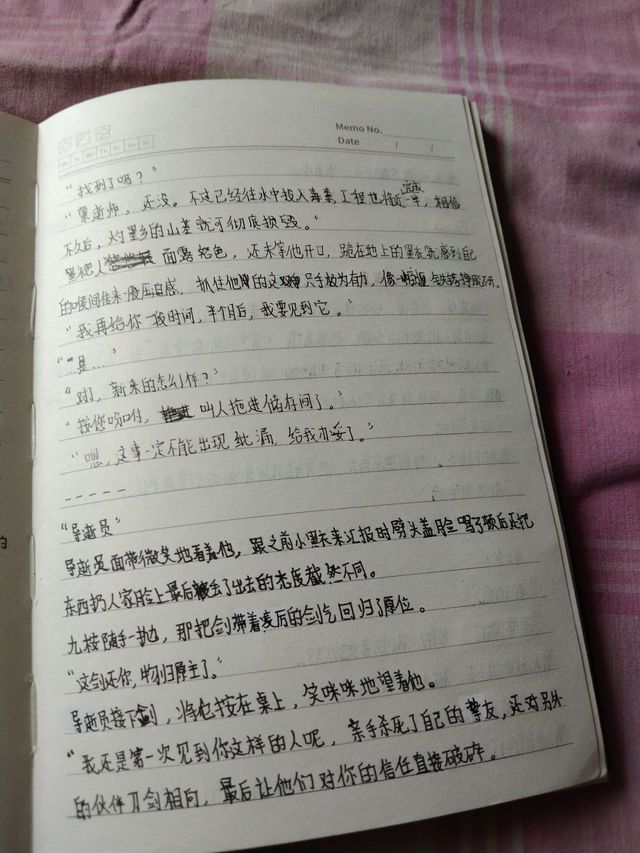 Memo No.
Date / /
Mo Tu We Th Fr Sa Su
"找到了吗？"
"渠逝师，还没。不过已经往水中投入毒素，工程也将近完成一半，相信
不久后，灼墨乡的山茶就可彻底损毁。"
黑袍人 面露怒色，还未等他开口，跪在地上的黑衣就感到自己
的喉间传来一股压迫感，抓住他的这只手极为有力，像铁
"我再给你一段时间，半个月后，我要见到它。"
"…是…"
"对了，新来的怎么样？"
"按您吩咐， 叫人拖进储存间了。"
"嗯，这事一定不能出现纰漏，给我办妥了。"
- - - - -
"导逝员"
导逝员面带微笑地看着他，跟之前小黑来汇报时劈头盖脸骂了顿后还把
东西扔人家脸上最后被丢了出去的态度截然不同。
九桉随手一抛，那把剑带着凌厉的剑气回归了原位。
"这剑还你，物归原主了。"
导逝员接下剑，将它按在桌上，笑咪咪地望着他。
"我还是第一次见到你这样的人呢，亲手杀死了自己的挚友，还对另外
的伙伴刀剑相向，最后让他们对你的信任直接破碎。